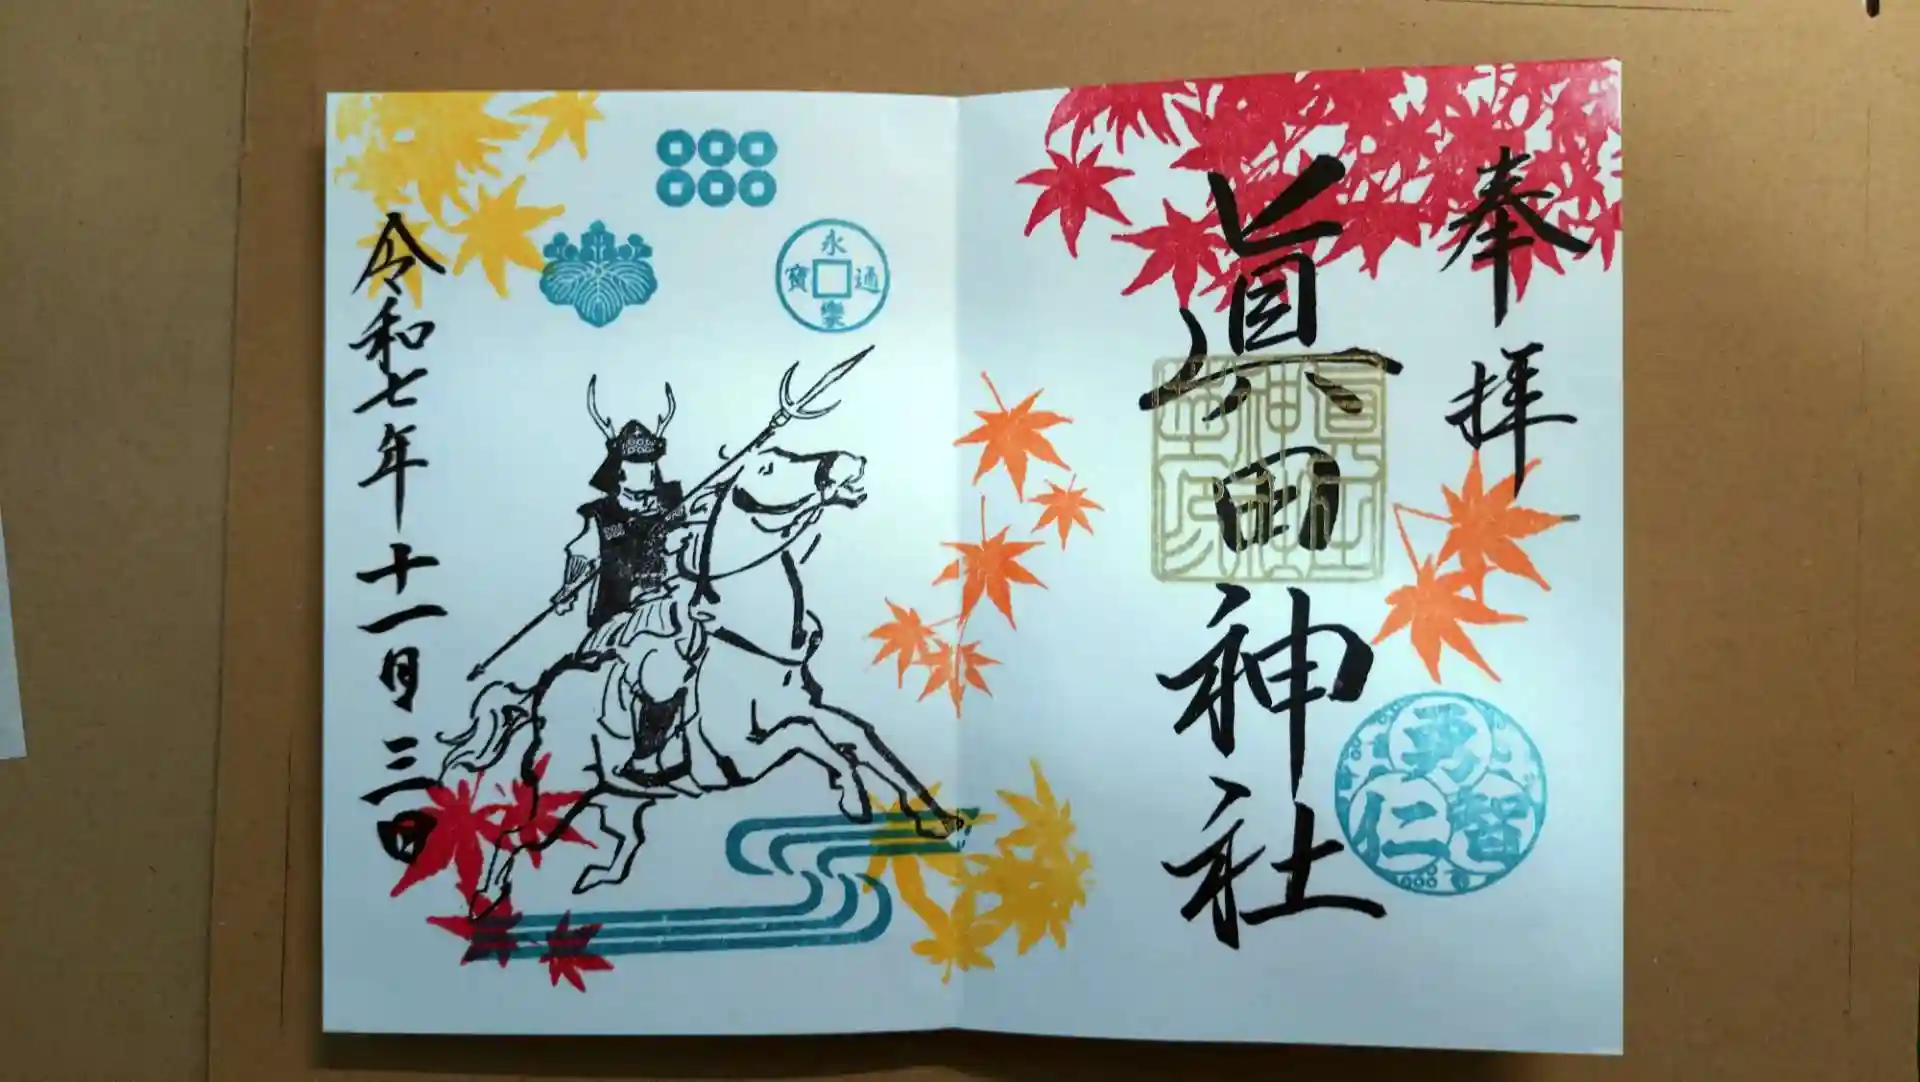 奉拝
眞田神社
勇
智
仁
令和七年十一月三日
永樂通寳